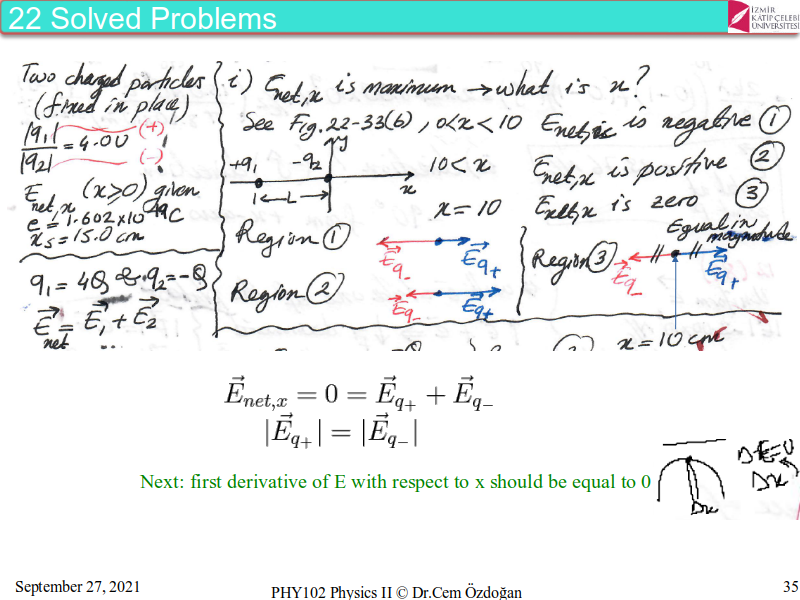 22 Solved Problems
İZMİR
KATİP ÇELEBİ
ÜNİVERSİTESİ
Two charged particles
(fixed in place)
|q1|/|q2| = 4.00
(+)
(-)
Enet,x (x≥0) given
e = 1.602x10^-19 C
xs = 15.0 cm
q1 = 4Q & q2 = -Q
Enet = E1 + E2
i) Enet,x is maximum → what is x?
See Fig. 22-33(b), 0<x<10 Enet,x is negative ①
10<x Enet,x is positive ②
x=10 Enet,x is zero ③
+q1 -q2 y
x
L
Region ①
Eq- Eq+
Region ②
Eq- Eq+
Region ③
Equal in
magnitude
Eq- Eq+
x = 10 cm
Enet,x = 0 = Eq+ + Eq-
|Eq+| = |Eq-|
Next: first derivative of E with respect to x should be equal to 0
ΔE=0
Δx
Δx
September 27, 2021
PHY102 Physics II © Dr.Cem Özdoğan
35